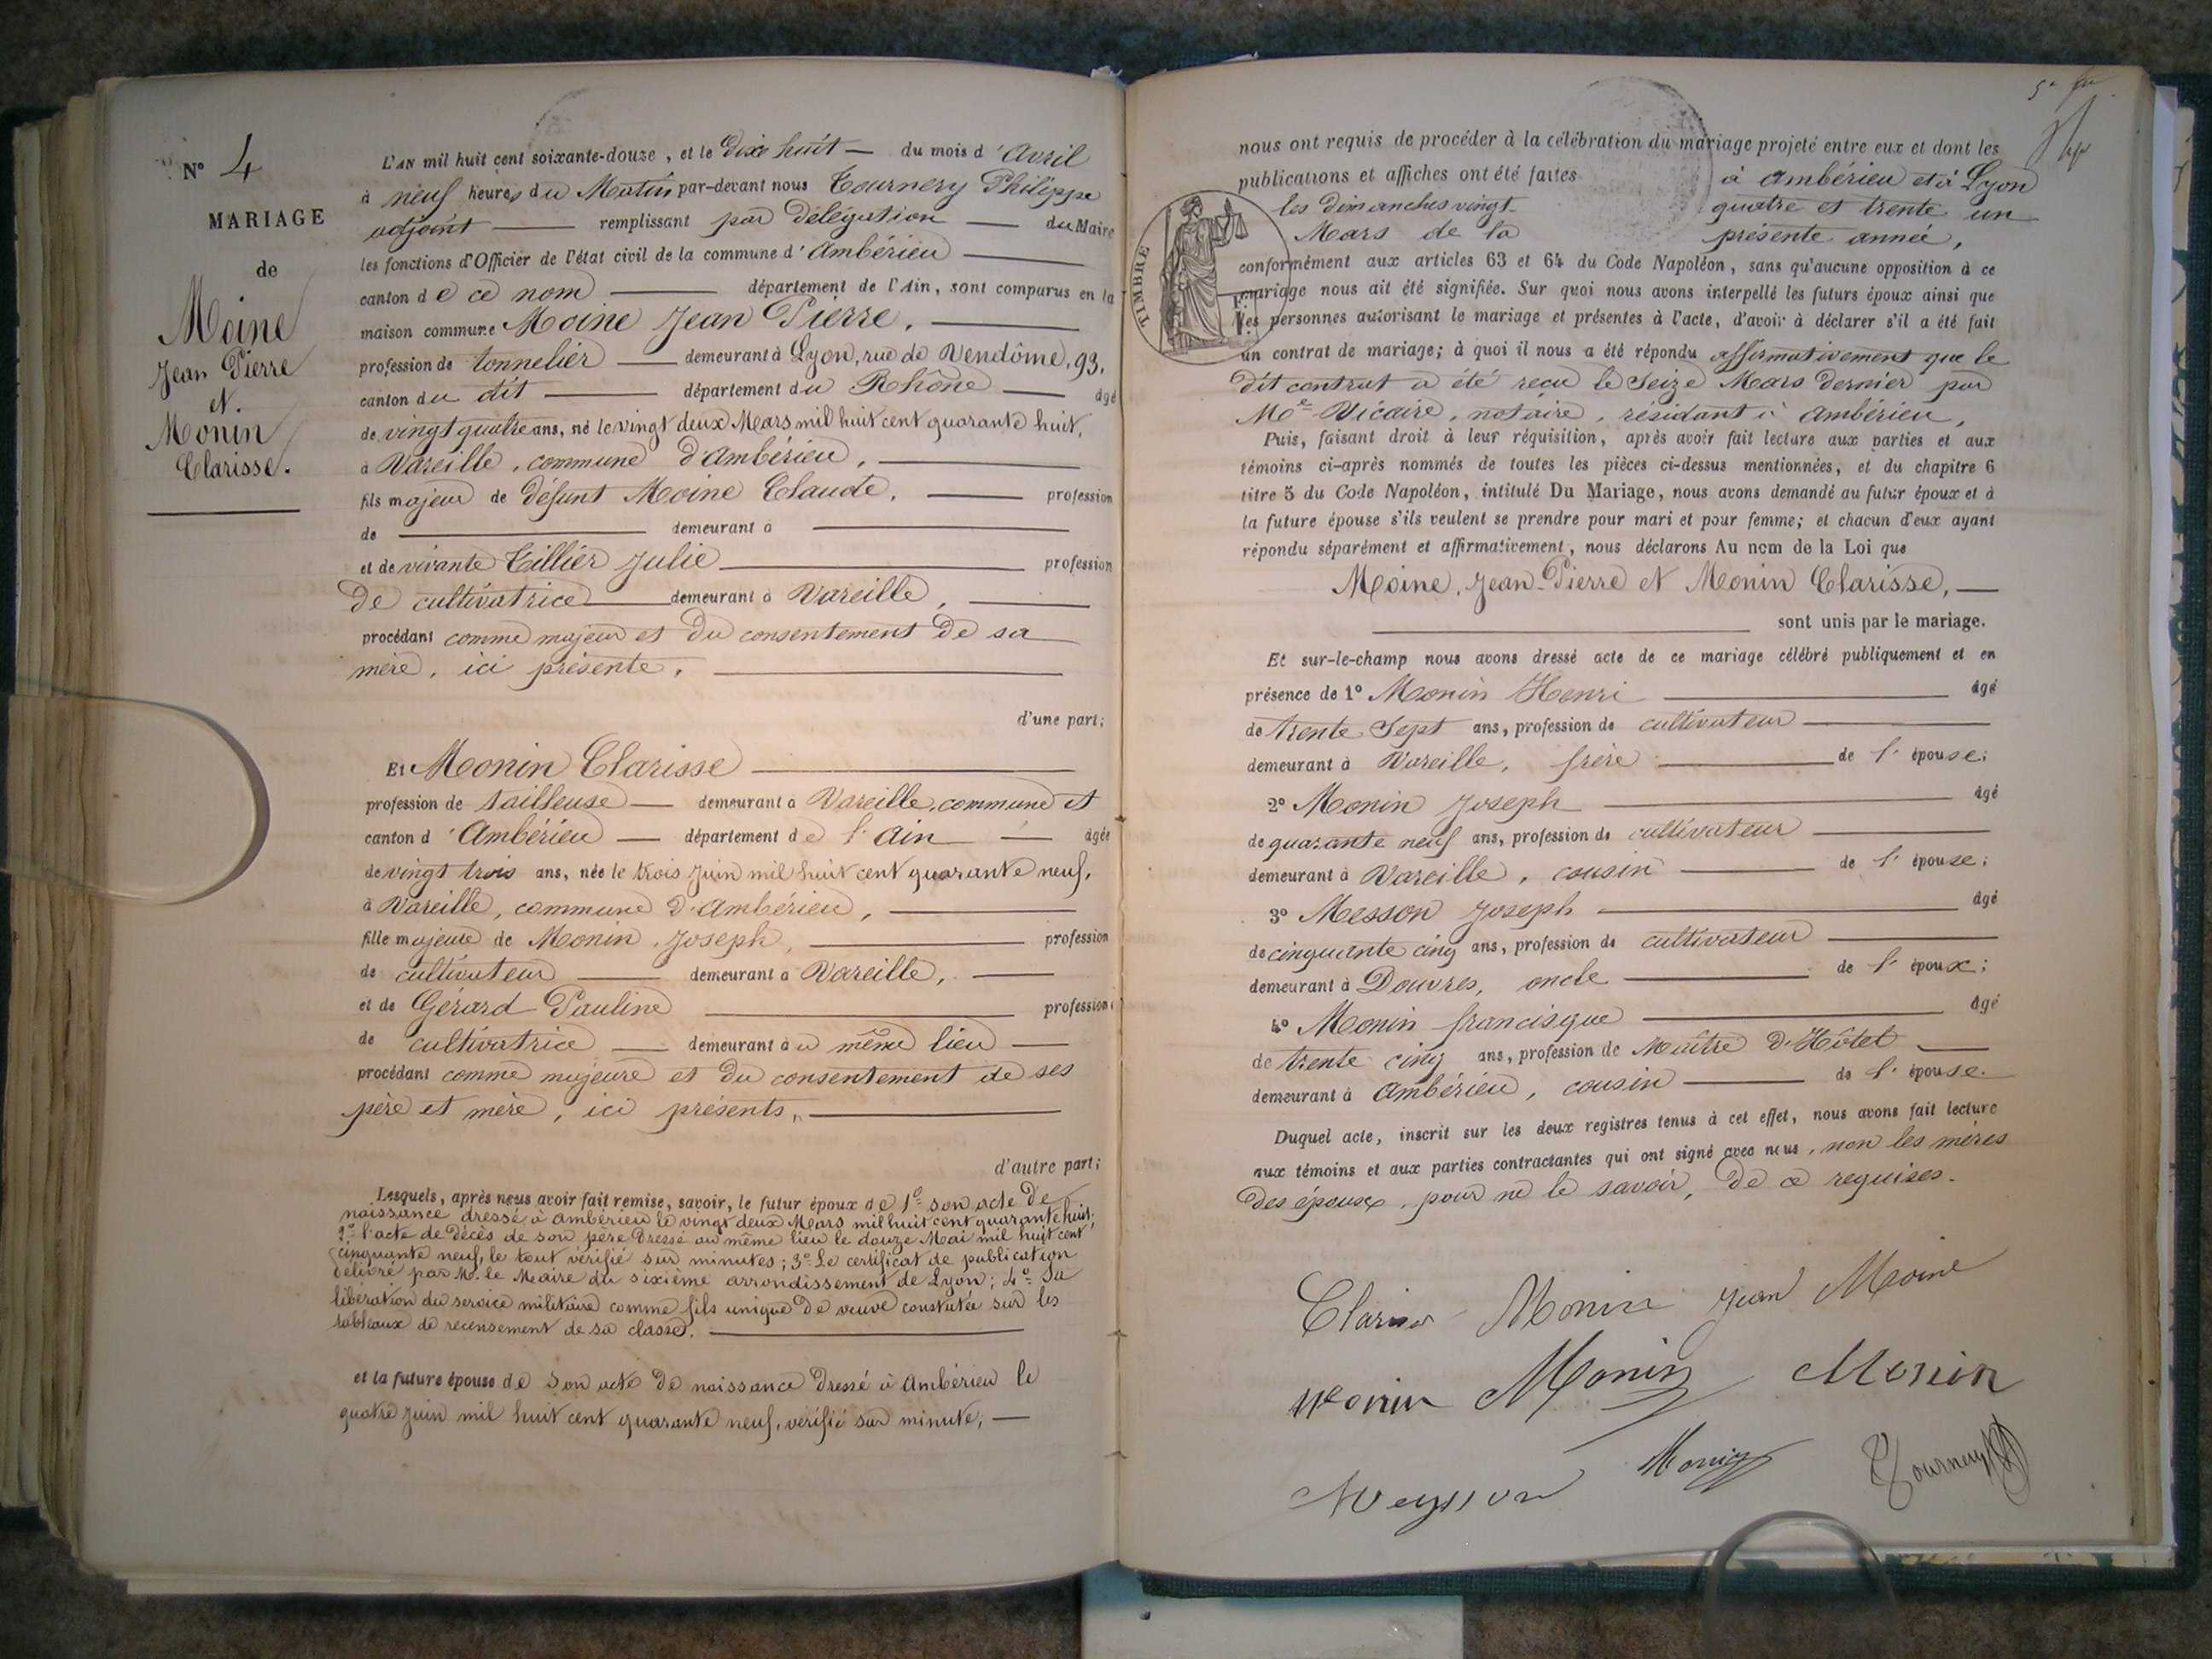 N° 4
MARIAGE
de
Moine
Jean Pierre
et.
Monin
Clarisse.
L'AN mil huit cent soixante-douze, et le dixe huit — du mois d'Avril
à neuf heures du Matin par-devant nous Tournery Philippe
adjoint — remplissant par délégation — du Maire
les fonctions d'Officier de l'état civil de la commune d'Ambérieu —
canton de ce nom — département de l'Ain, sont comparus en la
maison commune Moine Jean Pierre. —
profession de tonnelier — demeurant à Lyon, rue de Vendôme, 93,
canton du dit — département du Rhône — âgé
de vingt quatre ans, né le vingt deux Mars mil huit cent quarante huit,
à Vareille, commune d'Ambérieu, —
fils majeur de défunt Moine Claude, — profession
de — demeurant à —
et de vivante Tillier Julie — profession
de cultivatrice — demeurant à Vareille, —
procédant comme majeur et du consentement de sa
mère, ici présente, —
d'une part;
Et Monin Clarisse —
profession de tailleuse — demeurant à Vareille, commune et
canton d'Ambérieu — département de l'Ain — âgée
de vingt trois ans, née le trois Juin mil huit cent quarante neuf,
à Vareille, commune d'Ambérieu, —
fille majeure de Monin Joseph, — profession
de cultivateur — demeurant à Vareille, —
et de Gérard Pauline — profession
de cultivatrice — demeurant au même lieu —
procédant comme majeure et du consentement de ses
père et mère, ici présents, —
d'autre part;
Lesquels, après nous avoir fait remise, savoir, le futur époux de 1° son acte de
naissance dressé à Ambérieu le vingt deux Mars mil huit cent quarante huit;
2° l'acte de décès de son père dressé au même lieu le douze Mai mil huit cent
cinquante neuf, le tout vérifié sur minutes; 3° Le certificat de publication
délivré par M. le Maire du sixième arrondissement de Lyon; 4° Sa
libération du service militaire comme fils unique de veuve constatée sur les
tableaux de recensement de sa classe. —
et la future épouse de son acte de naissance dressé à Ambérieu le
quatre Juin mil huit cent quarante neuf, vérifié sur minute; —
nous ont requis de procéder à la célébration du mariage projeté entre eux et dont les
publications et affiches ont été faites à Ambérieu et à Lyon
les dimanches vingt-quatre et trente un
Mars de la présente année,
TIMBRE
conformément aux articles 63 et 64 du Code Napoléon, sans qu'aucune opposition à ce
mariage nous ait été signifiée. Sur quoi nous avons interpellé les futurs époux ainsi que
les personnes autorisant le mariage et présentes à l'acte, d'avoir à déclarer s'il a été fait
un contrat de mariage; à quoi il nous a été répondu affirmativement que le
dit contrat a été reçu le Seize Mars dernier par
Me Vicaire, notaire, résidant à Ambérieu,
Puis, faisant droit à leur réquisition, après avoir fait lecture aux parties et aux
témoins ci-après nommés de toutes les pièces ci-dessus mentionnées, et du chapitre 6
titre 5 du Code Napoléon, intitulé Du Mariage, nous avons demandé au futur époux et à
la future épouse s'ils veulent se prendre pour mari et pour femme; et chacun d'eux ayant
répondu séparément et affirmativement, nous déclarons Au nom de la Loi que
Moine, Jean-Pierre et Monin Clarisse, —
— sont unis par le mariage.
Et sur-le-champ nous avons dressé acte de ce mariage célébré publiquement et en
présence de 1° Monin Henri — âgé
de trente Sept ans, profession de cultivateur —
demeurant à Vareille, frère — de l'épouse;
2° Monin Joseph — âgé
de quarante neuf ans, profession de cultivateur —
demeurant à Vareille, cousin — de l'épouse;
3° Messon Joseph — âgé
de cinquante cinq ans, profession de cultivateur —
demeurant à Douvres, oncle — de l'époux;
4° Monin francisque — âgé
de trente cinq ans, profession de Maître d'Hôtel —
demeurant à Ambérieu, cousin — de l'épouse.
Duquel acte, inscrit sur les deux registres tenus à cet effet, nous avons fait lecture
aux témoins et aux parties contractantes qui ont signé avec nous, non les mères
des époux, pour ne le savoir, de ce requises.
Clarisse Monin Jean Moine
Monin Monin Monin
Meysson Monin Tournery